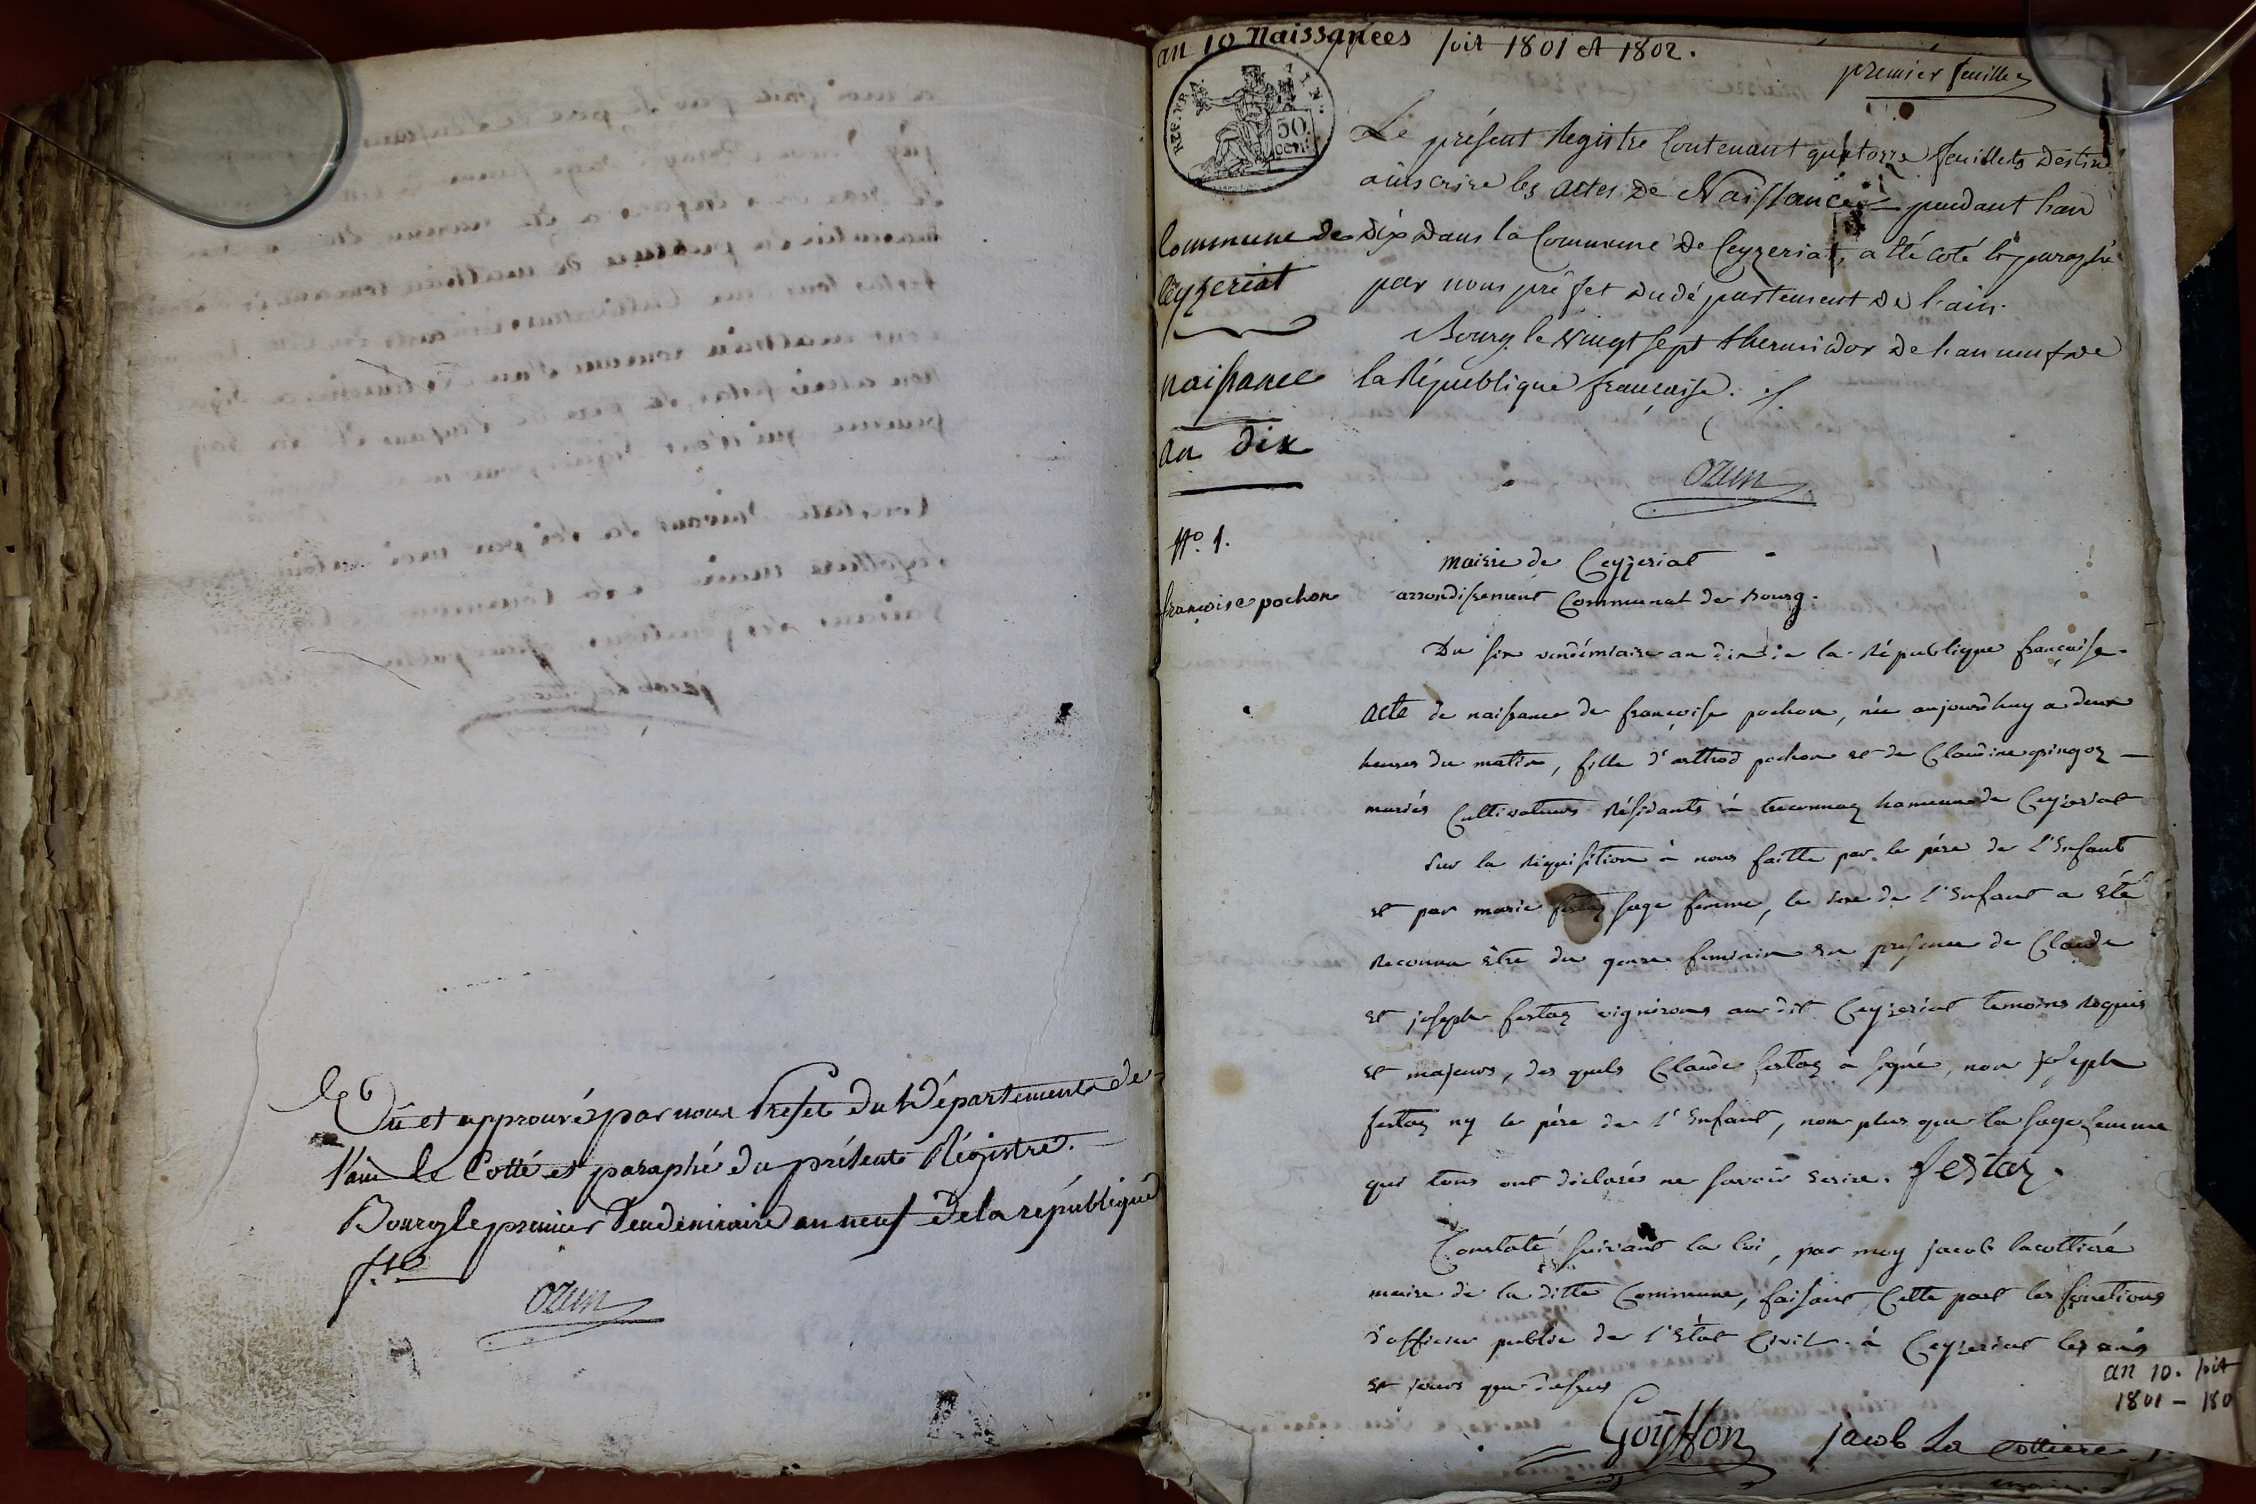 Vû et approuvé par nous Prefet du Département de
l'ain le Cotté et paraphé du présent Régistre.
Bourg le premier Vendemiaire an neuf de la république
f.se
Ozun
an 10 Naissances soit 1801 et 1802.
premier feuillet
REP. FRA.
50
cent.
Le présent Registre Contenant quatorze feuillets Destiné
a inscrire les actes de Naissance pendant l'an
Dix dans la Commune de Ceyzeriat, a été coté & paraphé
par nous préfet du département de l'ain.
Bourg le vingt sept thermidor de l'an neuf de
la République française.
Ozun
Commune de
Ceyzeriat
naissance
an dix
N.o 1.
françoise pochon
mairie de Ceyzeriat
arrondissement Communal de Bourg.
Du six vendémiaire an dix de la République française.
acte de naissance de françoise pochon, née aujourd'huy a deux
heures du matin, fille d'arthod pochon et de Claudine
mariés Cultivateurs Résidants à hameau de Ceyzeriat
Sur la Réquisition à nous faitte par le père de l'Enfant
et par marie festaz sage femme, le sexe de l'Enfant a Eté
Reconnu Etre du genre feminin En presence de Claude
et joseph festaz vignerons au dit Ceyzeriat temoins Requis
et majeurs, des quels Claude festaz à signé, non joseph
festaz ny le père de l'Enfant, non plus que la sage femme
qui tous ont déclarés ne savoir Ecrire. festaz.
Constaté suivant la loi, par moy jacob lacottiere
maire de la ditte Commune, faisant Cette part les fonctions
d'officier public de l'Etat Civil. à Ceyzeriat les an
et jours que dessus
Goiffon jacob La Cottiere
maire
an 10. soit
1801 - 180